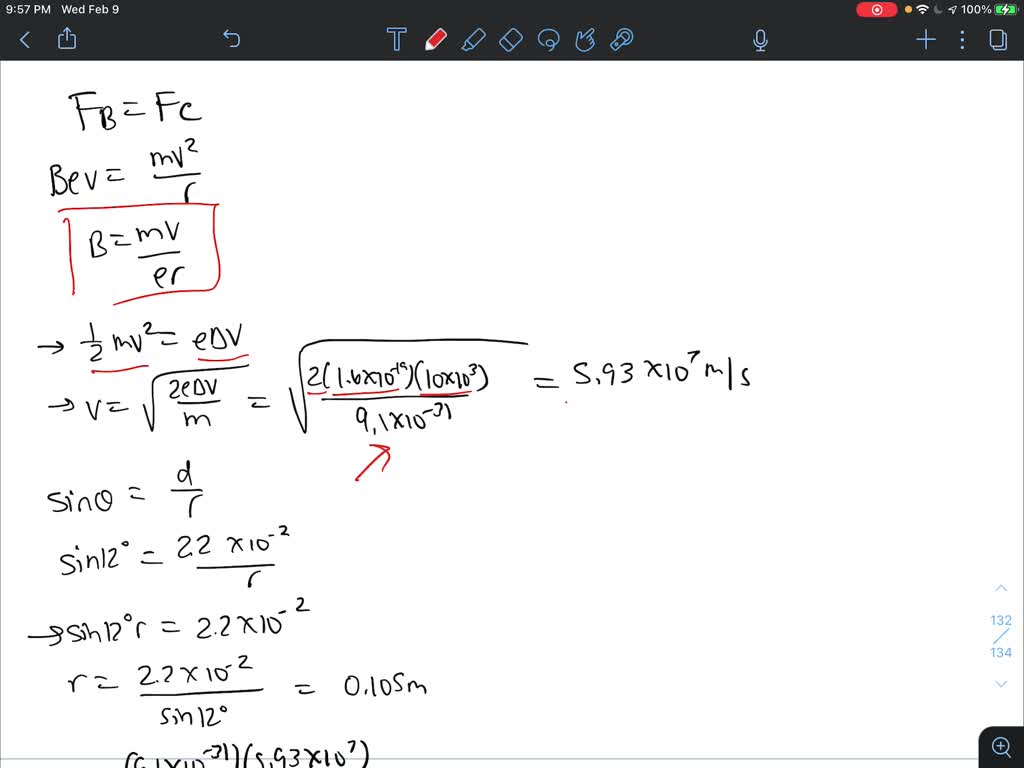 9:57 PM Wed Feb 9 100%
F_B = F_C
Bev = mv²/r
B = mv/er
→ 1/2 mv² = eΔV
→ v = √(2eΔV/m) = √(2(1.6×10⁻¹⁹)(10×10³)/9.1×10⁻³¹) = 5.93×10⁷ m/s
sinθ = d/r
sin12° = 2.2×10⁻²/r
→ sin12° r = 2.2×10⁻²
r = 2.2×10⁻²/sin12° = 0.105m
(9.1×10⁻³¹)(5.93×10⁷)
132
134